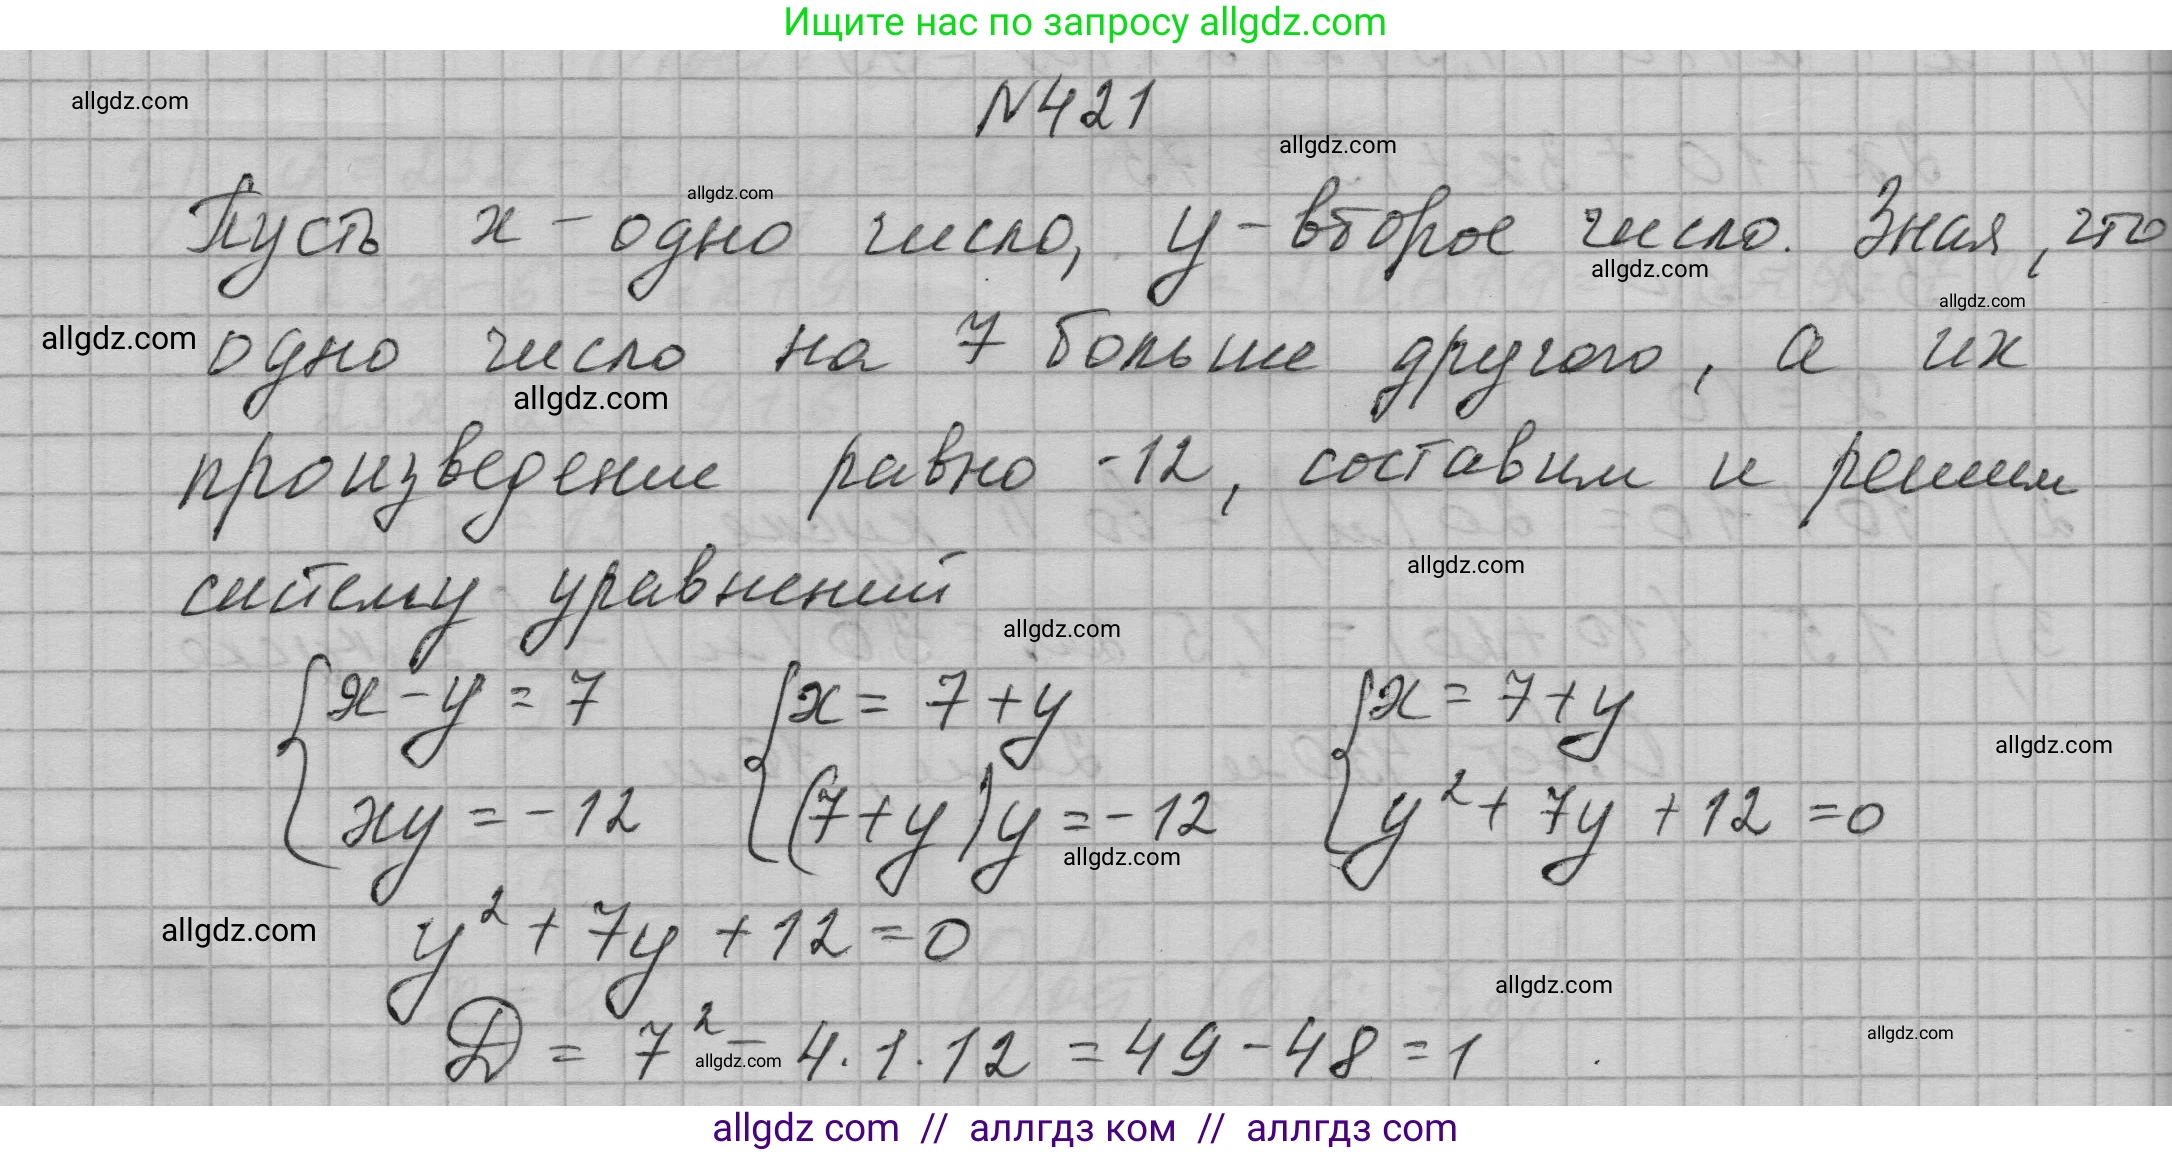 Ищите нас по запросу allgdz.com
allgdz.com
№421
allgdz.com
allgdz.com
Пусть x - одно число, y - второе число. Зная, что
allgdz.com
allgdz.com
allgdz.com одно число на 7 больше другого, а их
allgdz.com
произведение равно -12, составим и решим
систему уравнений
allgdz.com
allgdz.com
{x - y = 7 {x = 7 + y {x = 7 + y
allgdz.com
xy = -12 (7 + y)y = -12 y² + 7y + 12 = 0
allgdz.com
allgdz.com y² + 7y + 12 = 0
allgdz.com
D = 7² - 4 · 1 · 12 = 49 - 48 = 1
allgdz.com
allgdz.com
allgdz com // аллгдз ком // аллгдз com